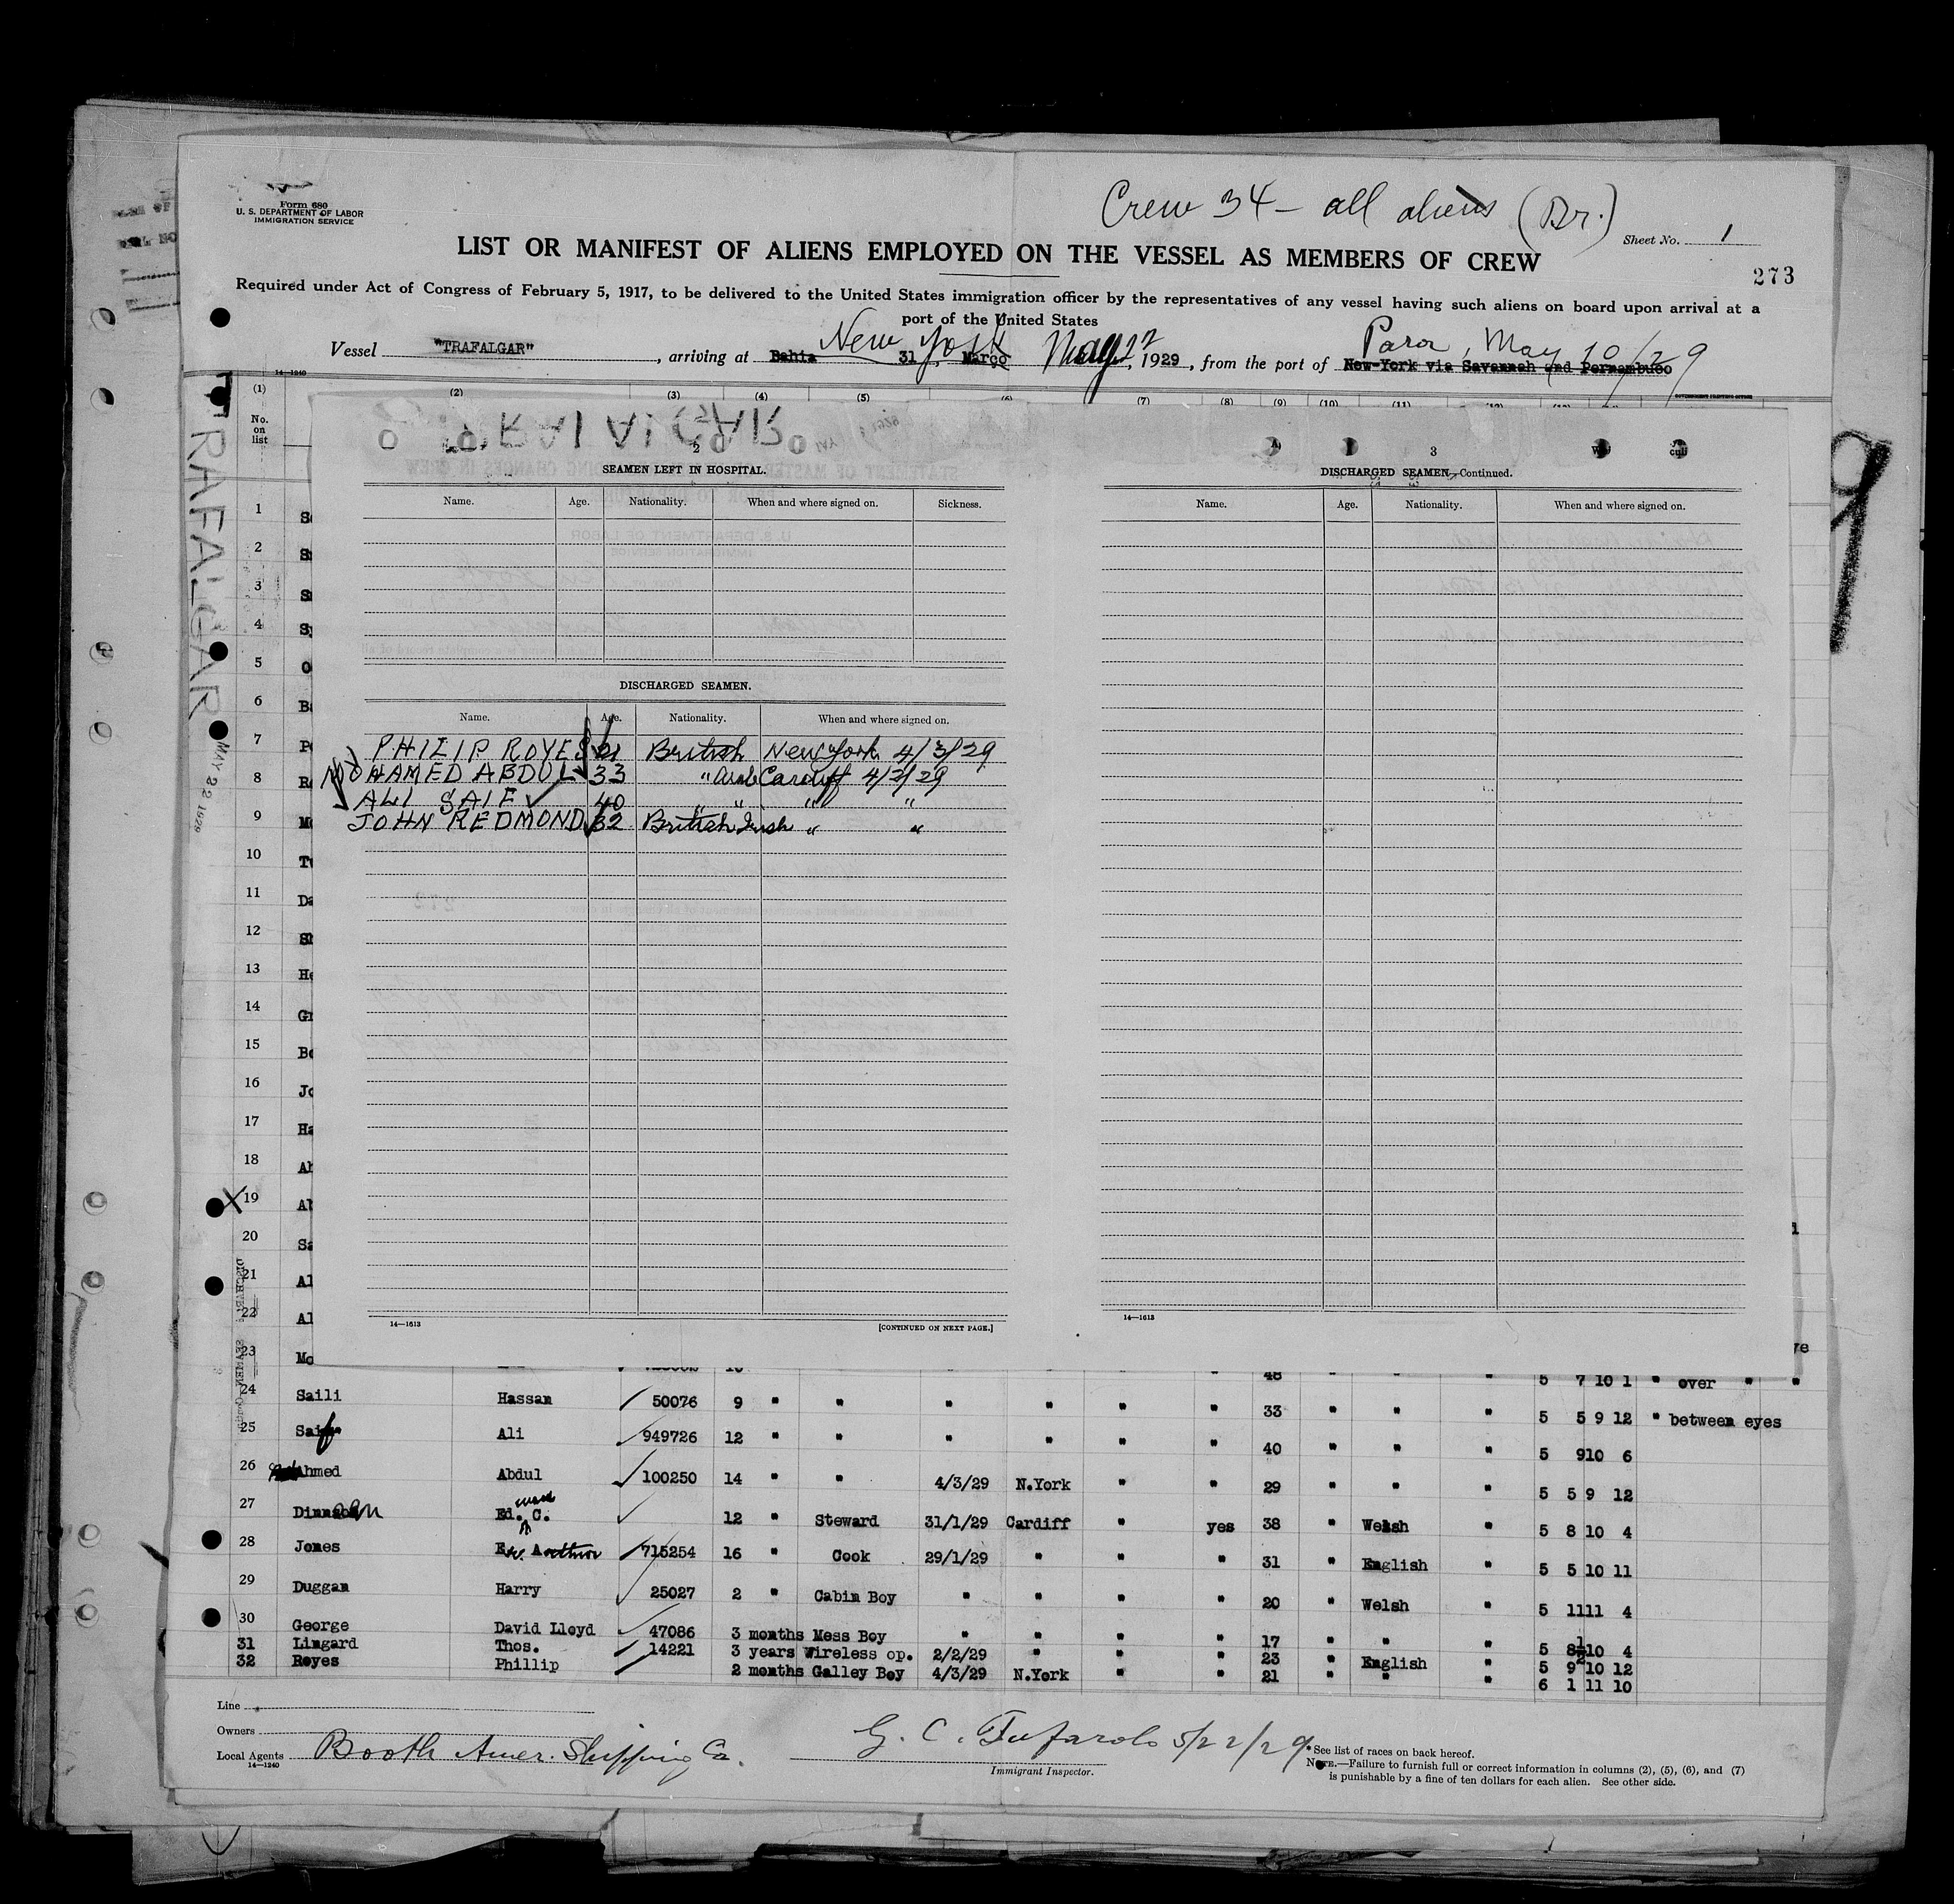 Form 680
U. S. DEPARTMENT OF LABOR
IMMIGRATION SERVICE
Crew 34 - all aliens (Br.)
Sheet No. 1
LIST OR MANIFEST OF ALIENS EMPLOYED ON THE VESSEL AS MEMBERS OF CREW
273
Required under Act of Congress of February 5, 1917, to be delivered to the United States immigration officer by the representatives of any vessel having such aliens on board upon arrival at a
port of the United States
New York May 22 Para, May 10/29
Vessel "TRAFALGAR", arriving at Bahia 31, Março, 1929, from the port of New-York via Savannah and Pernambuco
14-1240
GOVERNMENT PRINTING OFFICE
(1) (2) (3) (4) (5) (6) (7) (8) (9) (10) (11) (12)
No. on list
TRAFALGAR
MAY 22 1929
2
SEAMEN LEFT IN HOSPITAL.
Name. Age. Nationality. When and where signed on. Sickness.
DISCHARGED SEAMEN.
Name. Age. Nationality. When and where signed on.
PHILIP ROYES 21 British New York 4/3/29
MOHAMED ABDUL 33 " Arab Cardiff 4/2/29
ALI SAIF 40 " " " "
JOHN REDMOND 32 British Irish " "
14—1613
[CONTINUED ON NEXT PAGE.]
3
DISCHARGED SEAMEN—Continued.
Name. Age. Nationality. When and where signed on.
14—1613
1
2
3
4
5
6
7
8
9
10
11
12
13
14
15
16
17
18
19
20
21
22
23 Mo
48 " " " 5 7 10 1 " over " "
24 Saili Hassan 50076 9 " " " " " " 33 " " " 5 5 9 12 " between eyes
25 Saif Ali 949726 12 " " " " " " 40 " " " 5 9 10 6
26 Ahmed Abdul 100250 14 " " 4/3/29 N.York " " 29 " " " 5 5 9 12
27 Ed. C. 12 " Steward 31/1/29 Cardiff " yes 38 " Welsh " 5 8 10 4
28 Jones Arthur 715254 16 " Cook 29/1/29 " " " 31 " English " 5 5 10 11
29 Duggan Harry 25027 2 " Cabin Boy " " " " 20 " Welsh " 5 11 11 4
30 George David Lloyd 47086 3 months Mess Boy " " " " 17 " " " 5 8½ 10 4
31 Lingard Thos. 14221 3 years Wireless op. 2/2/29 " " " 23 " English " 5 9 10 12
32 Royes Phillip 2 months Galley Boy 4/3/29 N.York " " 21 " " " 6 1 11 10
Line
Owners
Local Agents Booth Amer. Shipping Co.
14—1240
G. C. Tufarolo 5/22/29
Immigrant Inspector.
*See list of races on back hereof.
NOTE.—Failure to furnish full or correct information in columns (2), (5), (6), and (7)
is punishable by a fine of ten dollars for each alien. See other side.